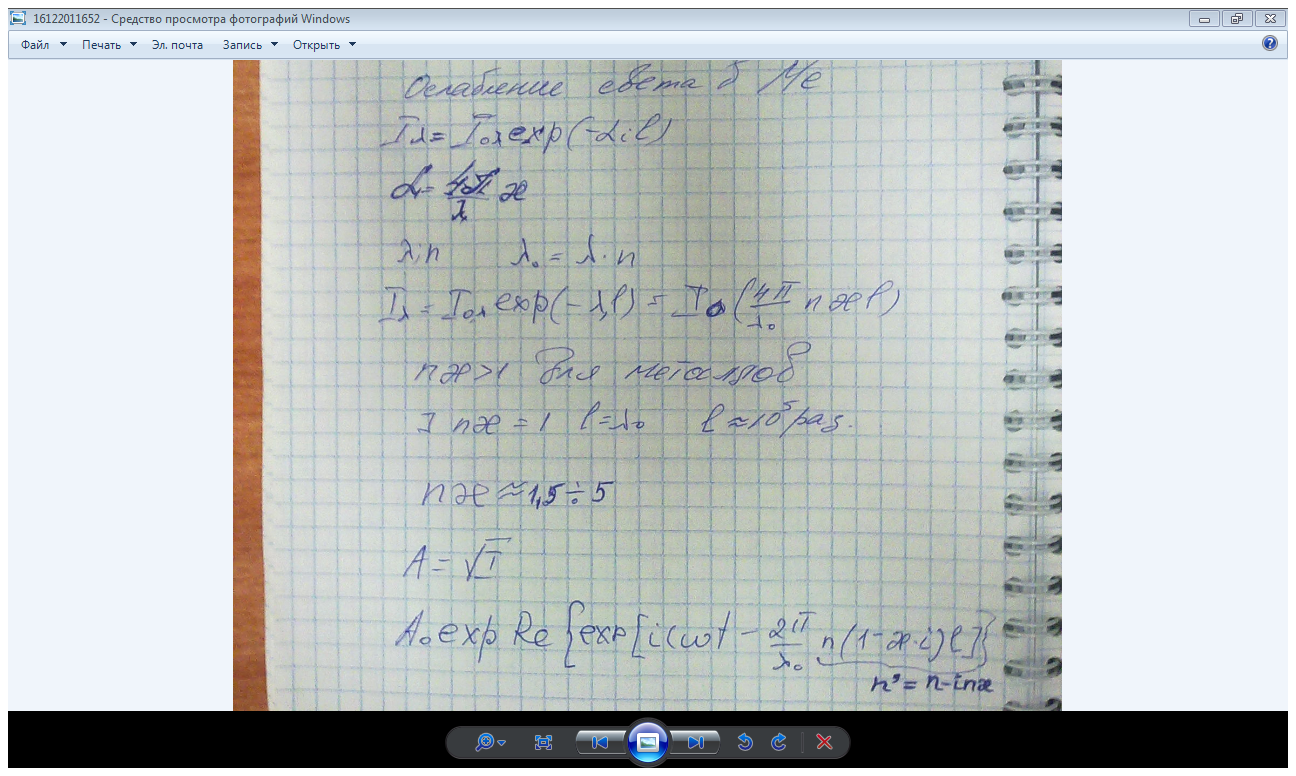 16122011652 - Средство просмотра фотографий Windows
Файл Печать Эл. почта Запись Открыть
Ослабление света в Me
Iλ = I₀λ exp(-α₁l)
α = 4π/λ æ
λ; n λ₀ = λ · n
Iλ = I₀λ exp(-λ₁l) = I₀ (4π/λ₀ n æ l)
næ > 1 для металлов
] næ = 1 l = λ₀ l ≈ 10⁵ раз.
næ ≈ 1,5 ÷ 5
A = √I
A₀ exp Re {exp [i(ωt - 2π/λ₀ n(1 - æ·i)l]}
n' = n - inæ